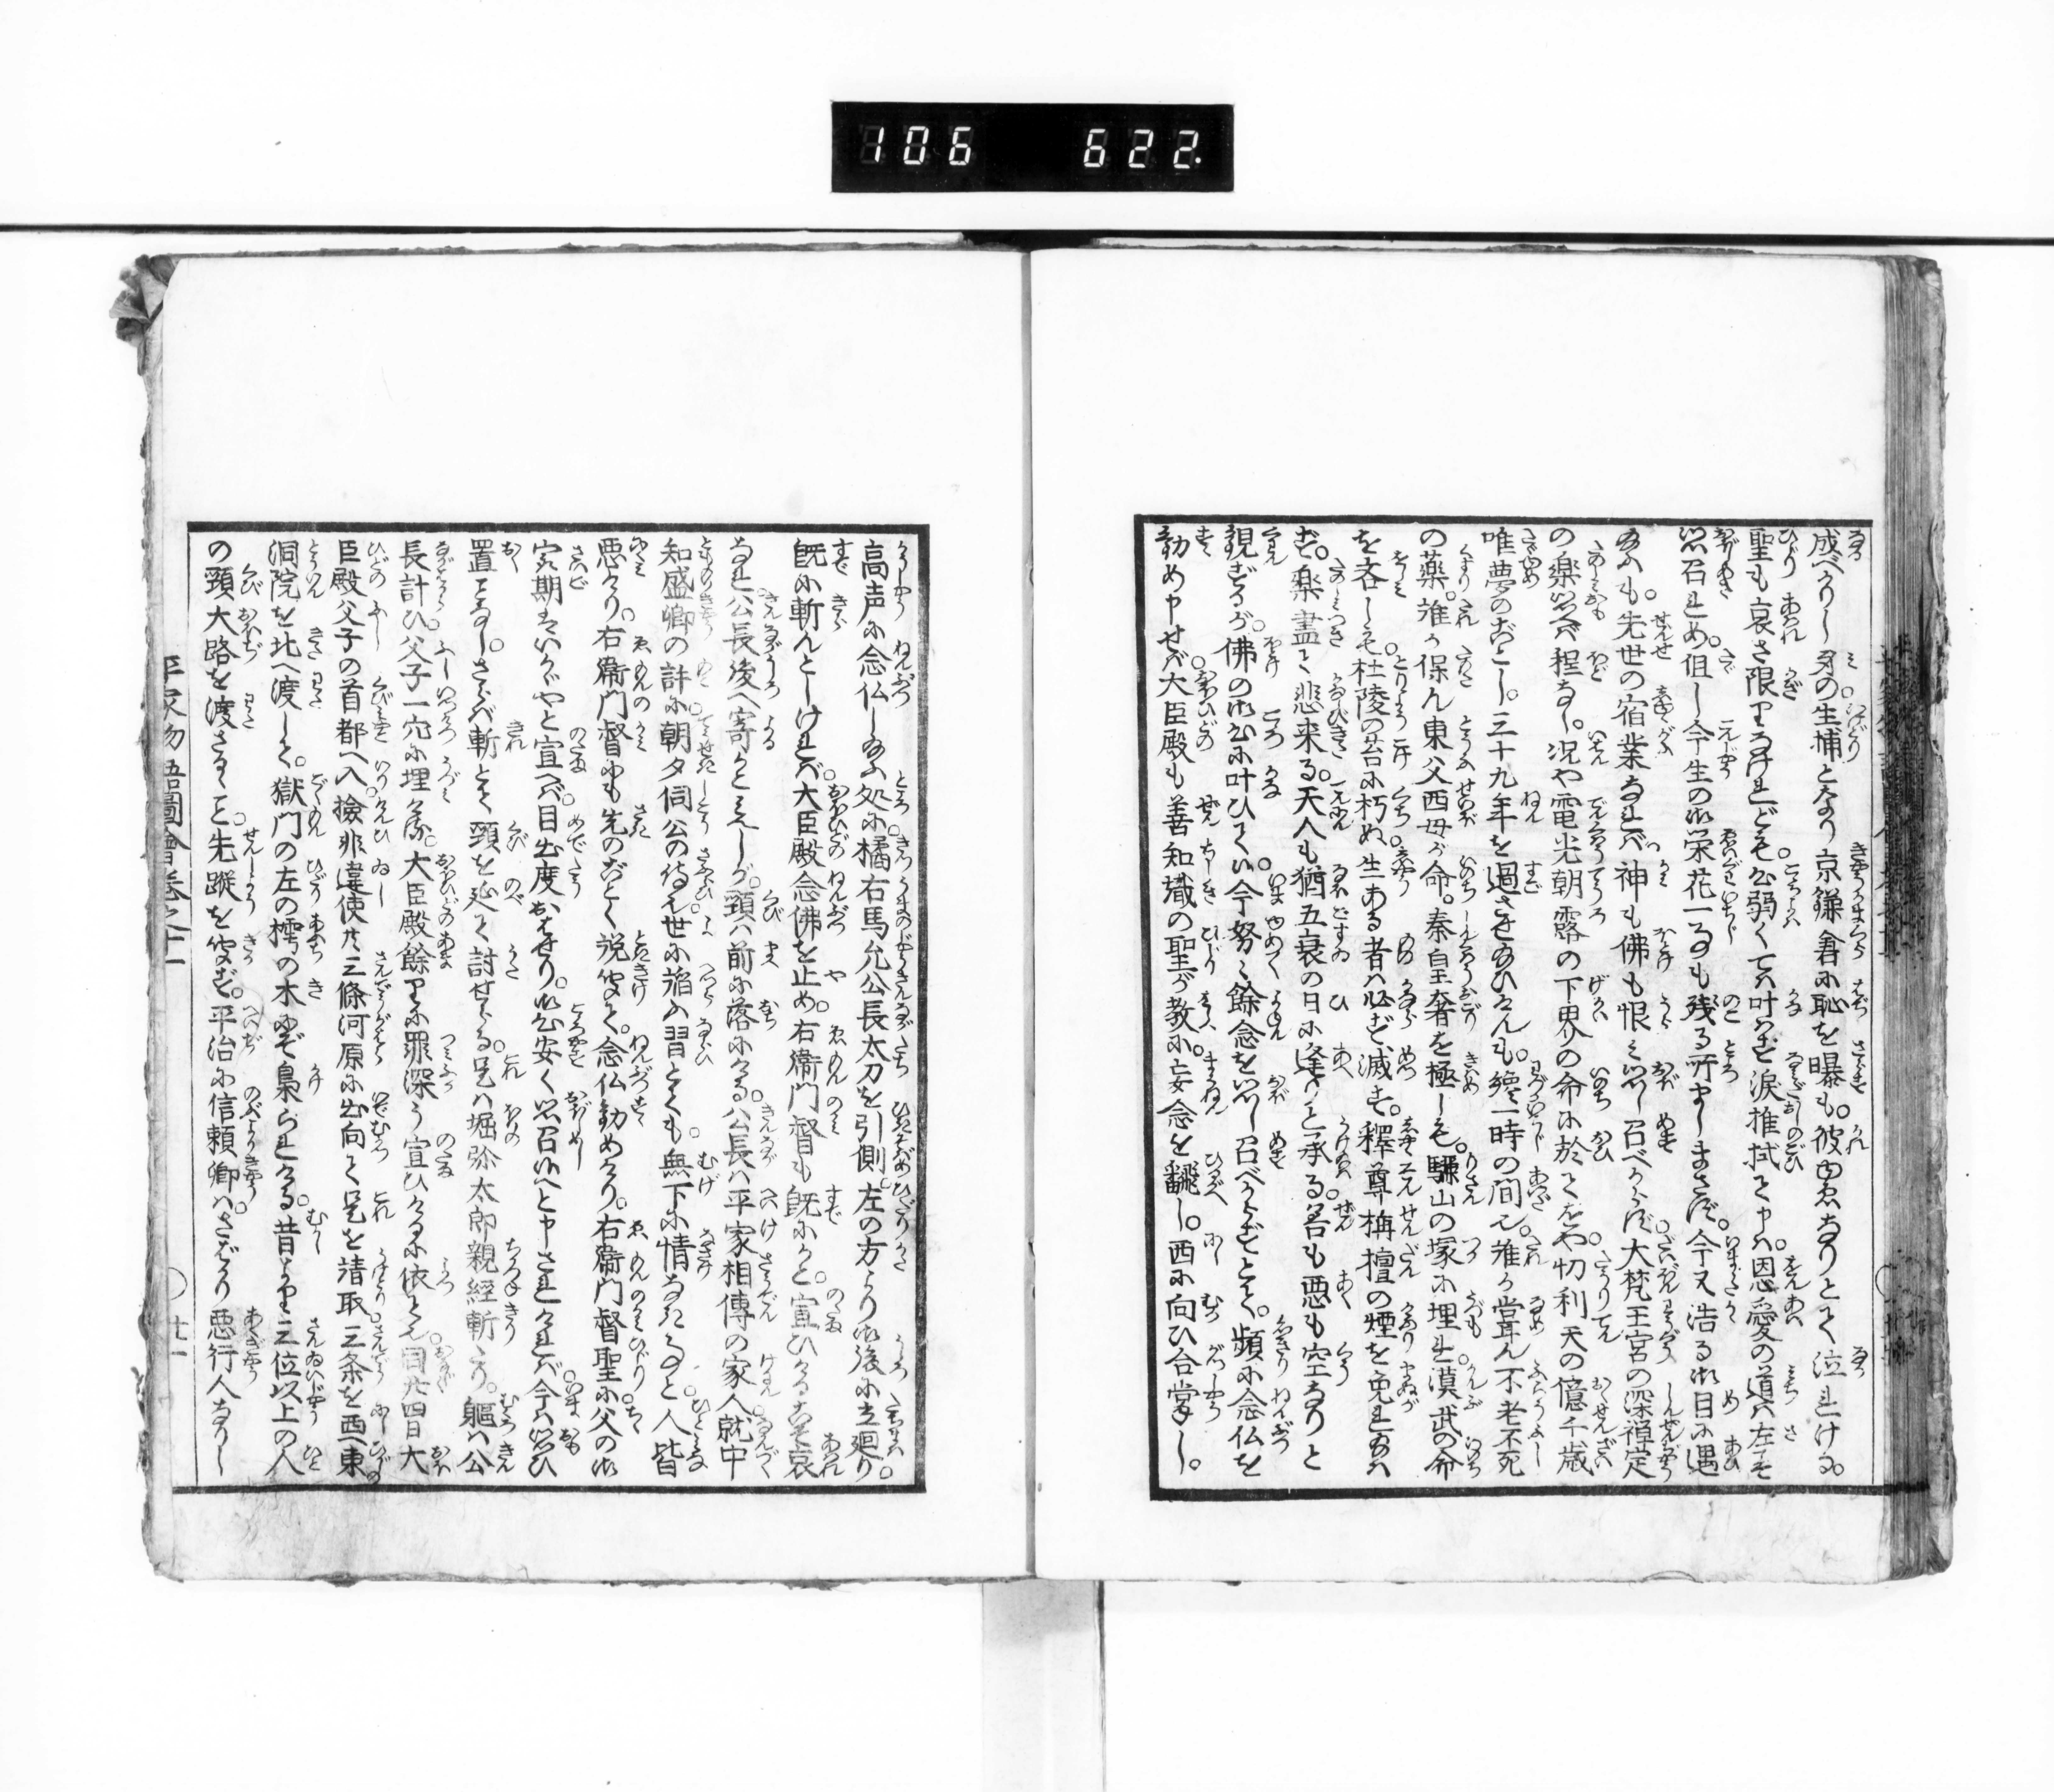 106 622
成べかりし身の生捕となり京鎌倉に恥を曝も。彼ゆゑなりとて泣れける。
聖も哀さ限りなけれども。心弱くては叶はじと涙推拭て申は。恩愛の道は左こそ
思召れめ。但し今生の御栄花一つも残る所ましまさず。今又浩る御目に遇
給ふも。先世の宿業なれば神も佛も恨み思し召べからず。大梵王宮の深禅定
の楽思へば程なし。况や電光朝露の下界の命に於てをや。忉利天の億千歳
唯夢のごとし。三十九年を過させ給ひけんも。纔一時の間也。誰か甞ん不老不死
の薬。誰か保ん東父西母が命。秦皇奢を極しも。驪山の塚に埋れ漢武の命
を吝しも。杜陵の苔に朽ぬ。生ある者は必ず滅す。釋尊栴檀の煙を免れ給は
ず。楽盡て悲来る。天人も猶五衰の日に逢りと承る。善も悪も空なりと
観ずるが。佛の御心に叶ひて候。今努々餘念を思し召べからずとて。頻に念仏を
勧め申せば。大臣殿も善知識の聖が教に。妄念を飜し。西に向ひ合掌し。
高声に念仏し給ふ処に。橘右馬允公長太刀を引側。左の方より御後に立廻り
既に斬んとしければ。大臣殿念佛を止め。右衞門督も既にかと。宣ひけるこそ哀
なれ。公長後へ寄かとみえしが。頸は前に落にける。公長は平家相傳の家人。就中
知盛卿の許に。朝夕伺公の侍也。世に謟ふ習とても。無下に情なきかなと。人皆
悪けり。右衞門督にも先のごとく説聞て。念仏勧めけり。右衞門督聖に。父の御
最期はいかゞやと宣へば。目出度おはせり。御心安く思召候へと申されければ。今は思ひ
置ことなし。さらば斬とて頸を延て討せらる。是は堀弥太郎親経斬けり。軀は公
長計ひ。父子一穴に埋ける。大臣殿餘りに罪深う宣ひけるに依て也。同廿四日大
臣殿父子の首都へ入。撿非違使共三條河原に出向て是を請取。三条を西へ東
洞院を北へ渡して。獄門の左の樗の木にぞ梟られける。昔より三位以上の人
の頸大路を渡さるゝこと。先蹤を聞ず。平治に信頼卿は。さばかり悪行人なりし
平家物語圖會巻之十一